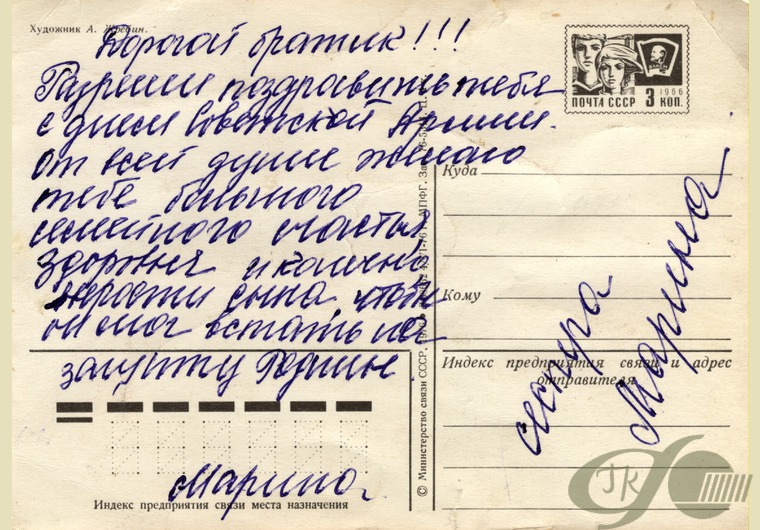 Художник А. Жребин.
Дорогой братик!!!
Разреши поздравить тебя
с днем Советской Армии.
от всей души желаю
тебе большого
семейного счастья
здоровья и конечно
вырасти сына, чтобы
он смог встать на
защиту Родины.
Марина.
Индекс предприятия связи места назначения
© Министерство связи СССР.
ПОЧТА СССР 3 КОП.
1966
ВЛКСМ
Куда
Кому
Индекс предприятия связи и адрес
отправителя
сестра
Марина
ГК